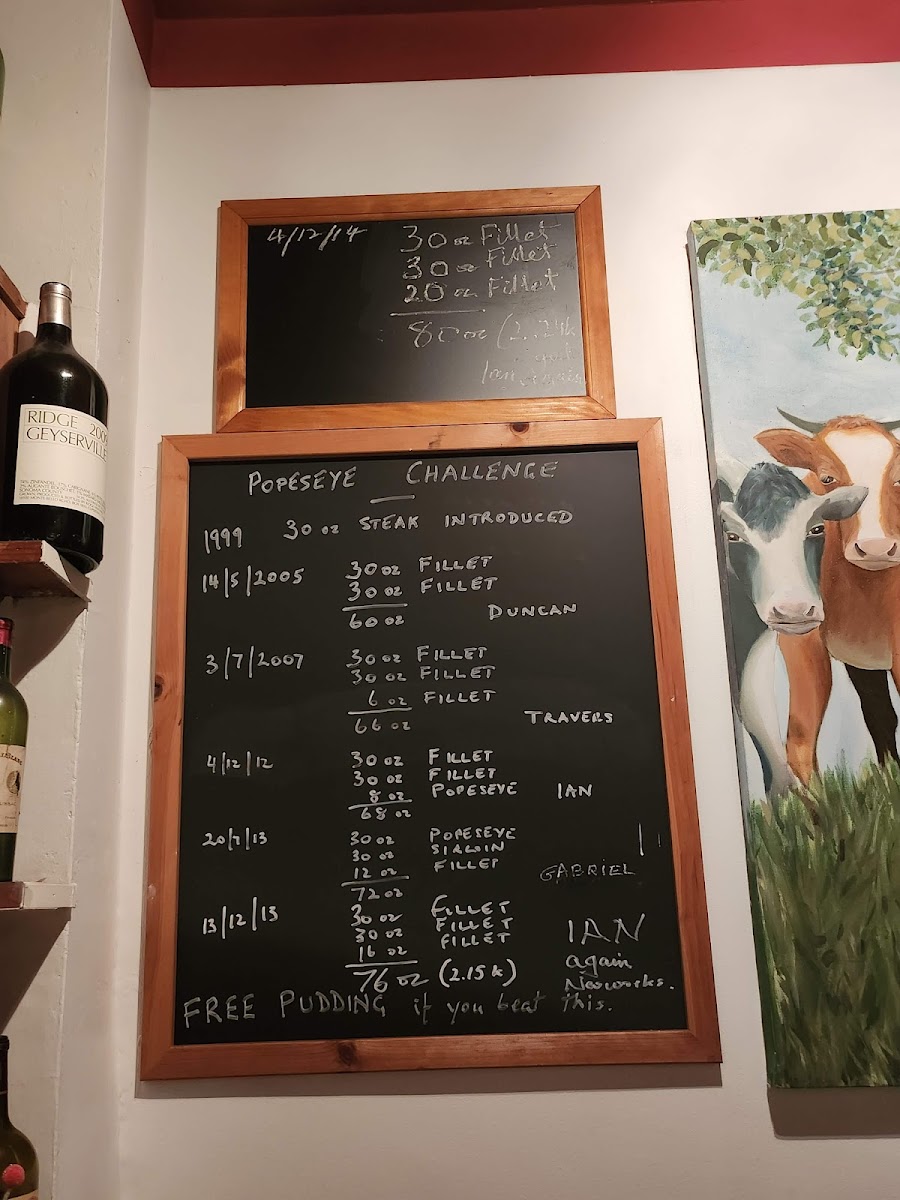 4/12/14 30 oz Fillet
30 oz Fillet
20 oz Fillet
80 oz (2.24k
Ian again
POPESEYE CHALLENGE
1999 30 oz STEAK INTRODUCED
14/5/2005 30 oz FILLET
30 oz FILLET
60 oz DUNCAN
3/7/2007 30 oz FILLET
30 oz FILLET
6 oz FILLET
66 oz TRAVERS
4/12/12 30 oz FILLET
30 oz FILLET
8 oz POPESEYE IAN
68 oz
20/7/13 30 oz POPESEYE
30 oz SIRLOIN
12 oz FILLET GABRIEL
72 oz
13/12/13 30 oz FILLET
30 oz FILLET
16 oz FILLET IAN
76 oz (2.15 k) again
FREE PUDDING if you beat this.
RIDGE
GEYSERVILLE